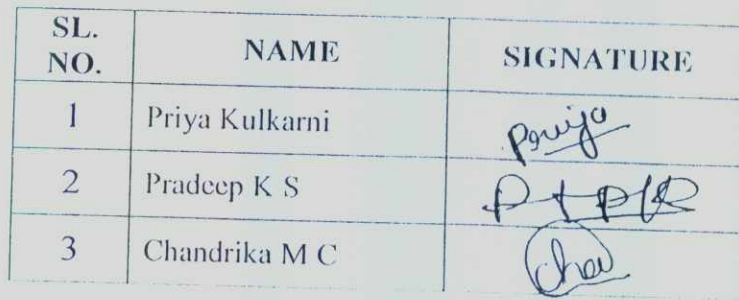 SL. NO. NAME SIGNATURE
1 Priya Kulkarni Priya
2 Pradeep K S
3 Chandrika M C